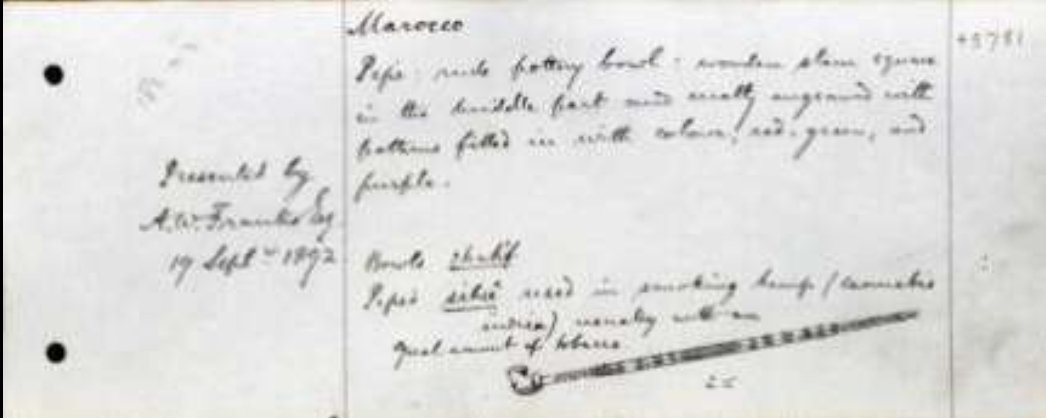 Marocco
+5781
Pipe: rude pottery bowl: wooden stem square
in the middle part and neatly engraved with
patterns filled in with colour, red, green, and
purple.
Presented by
A.W. Franks Esq
19 Septr 1892
Bowls
Pipes sebsi used in smoking hemp (cannabis
indica) usually with an
equal amount of tobacco